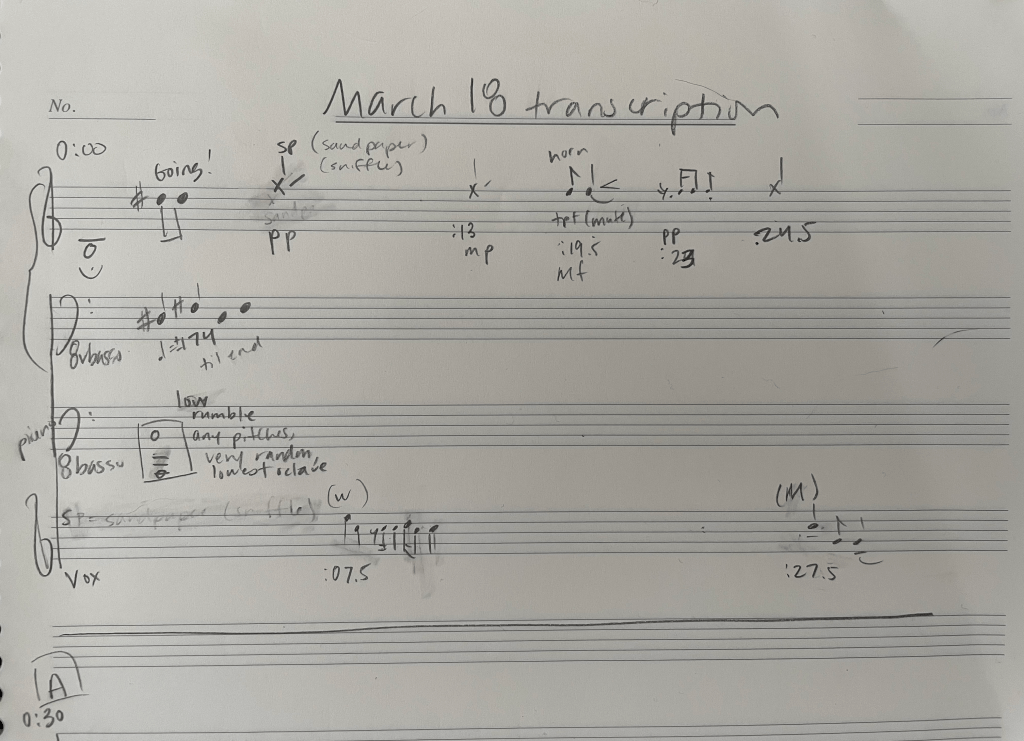 No.
March 18 transcription
0:00
Going!
sp (sandpaper)
(sniffle)
pp
:13
mp
horn
tpt (mute)
:19.5
Mf
pp
:23
:24.5
8vbasso
♩=±174
til end
low
rumble
any pitches,
very random,
lowest octave
piano
8basso
SP = sandpaper (sniffle)
(W)
:07.5
(M)
:27.5
Vox
A
0:30